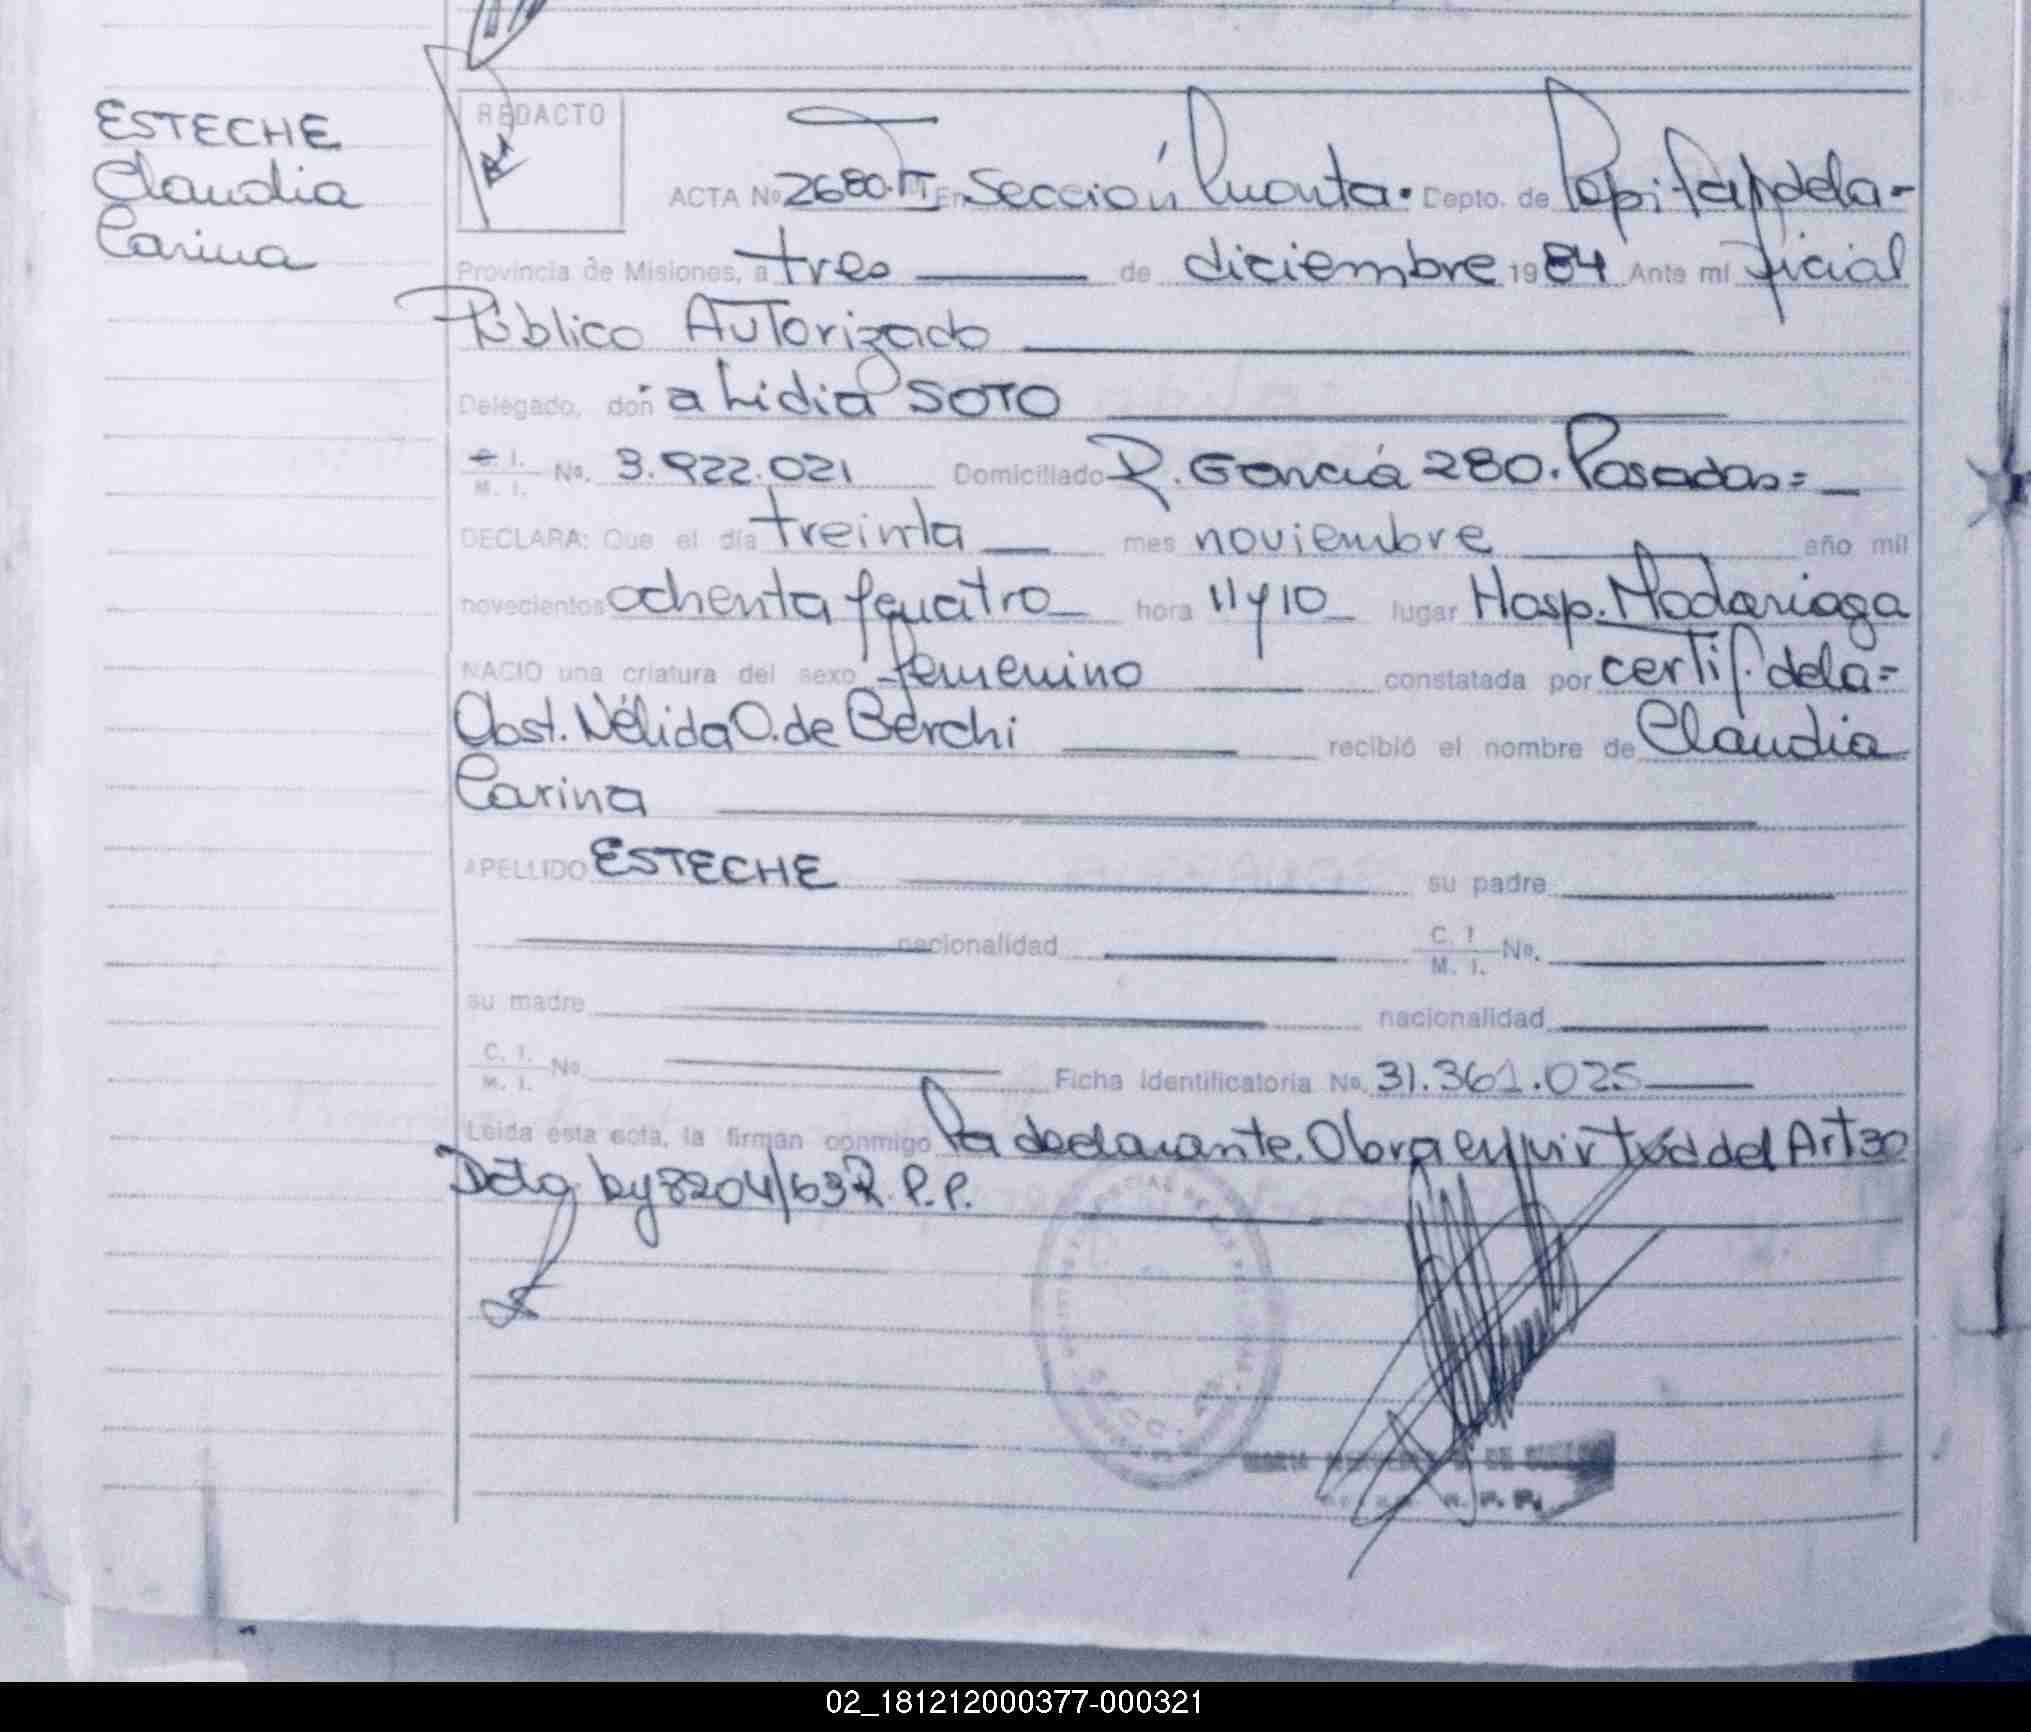 ESTECHE
Claudia
Carina
REDACTO
ACTA Nº 2680.TT En Sección Cuarta. Depto. de Capital, de la-
Provincia de Misiones, a tres de diciembre 1984 Ante mí Oficial
Público Autorizado
Delegado, doña Lidia SOTO
C. I.
M. I. Nº. 3.922.021 Domiciliado R. García 280. Posadas=
DECLARA: Que el día treinta mes noviembre año mil
novecientos ochenta y cuatro hora 11 y 10 lugar Hosp. Madariaga
NACIO una criatura del sexo femenino constatada por certif. de la=
Obst. Nélida O. de Berchi recibió el nombre de Claudia
Carina
APELLIDO ESTECHE su padre
nacionalidad C. I. M. I. Nº.
su madre nacionalidad
C. I. M. I. Nº Ficha Identificatoria Nº. 31.361.025
Leída esta acta, la firman conmigo la declarante. Obra en virtud del Art 30
Dcto ley 8204/63 R.P.P.
MARIA DE
R. P. P.
02_181212000377-000321